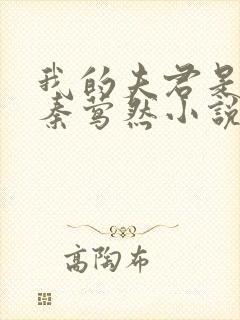 我的夫君是
秦莺然小说
高陶布